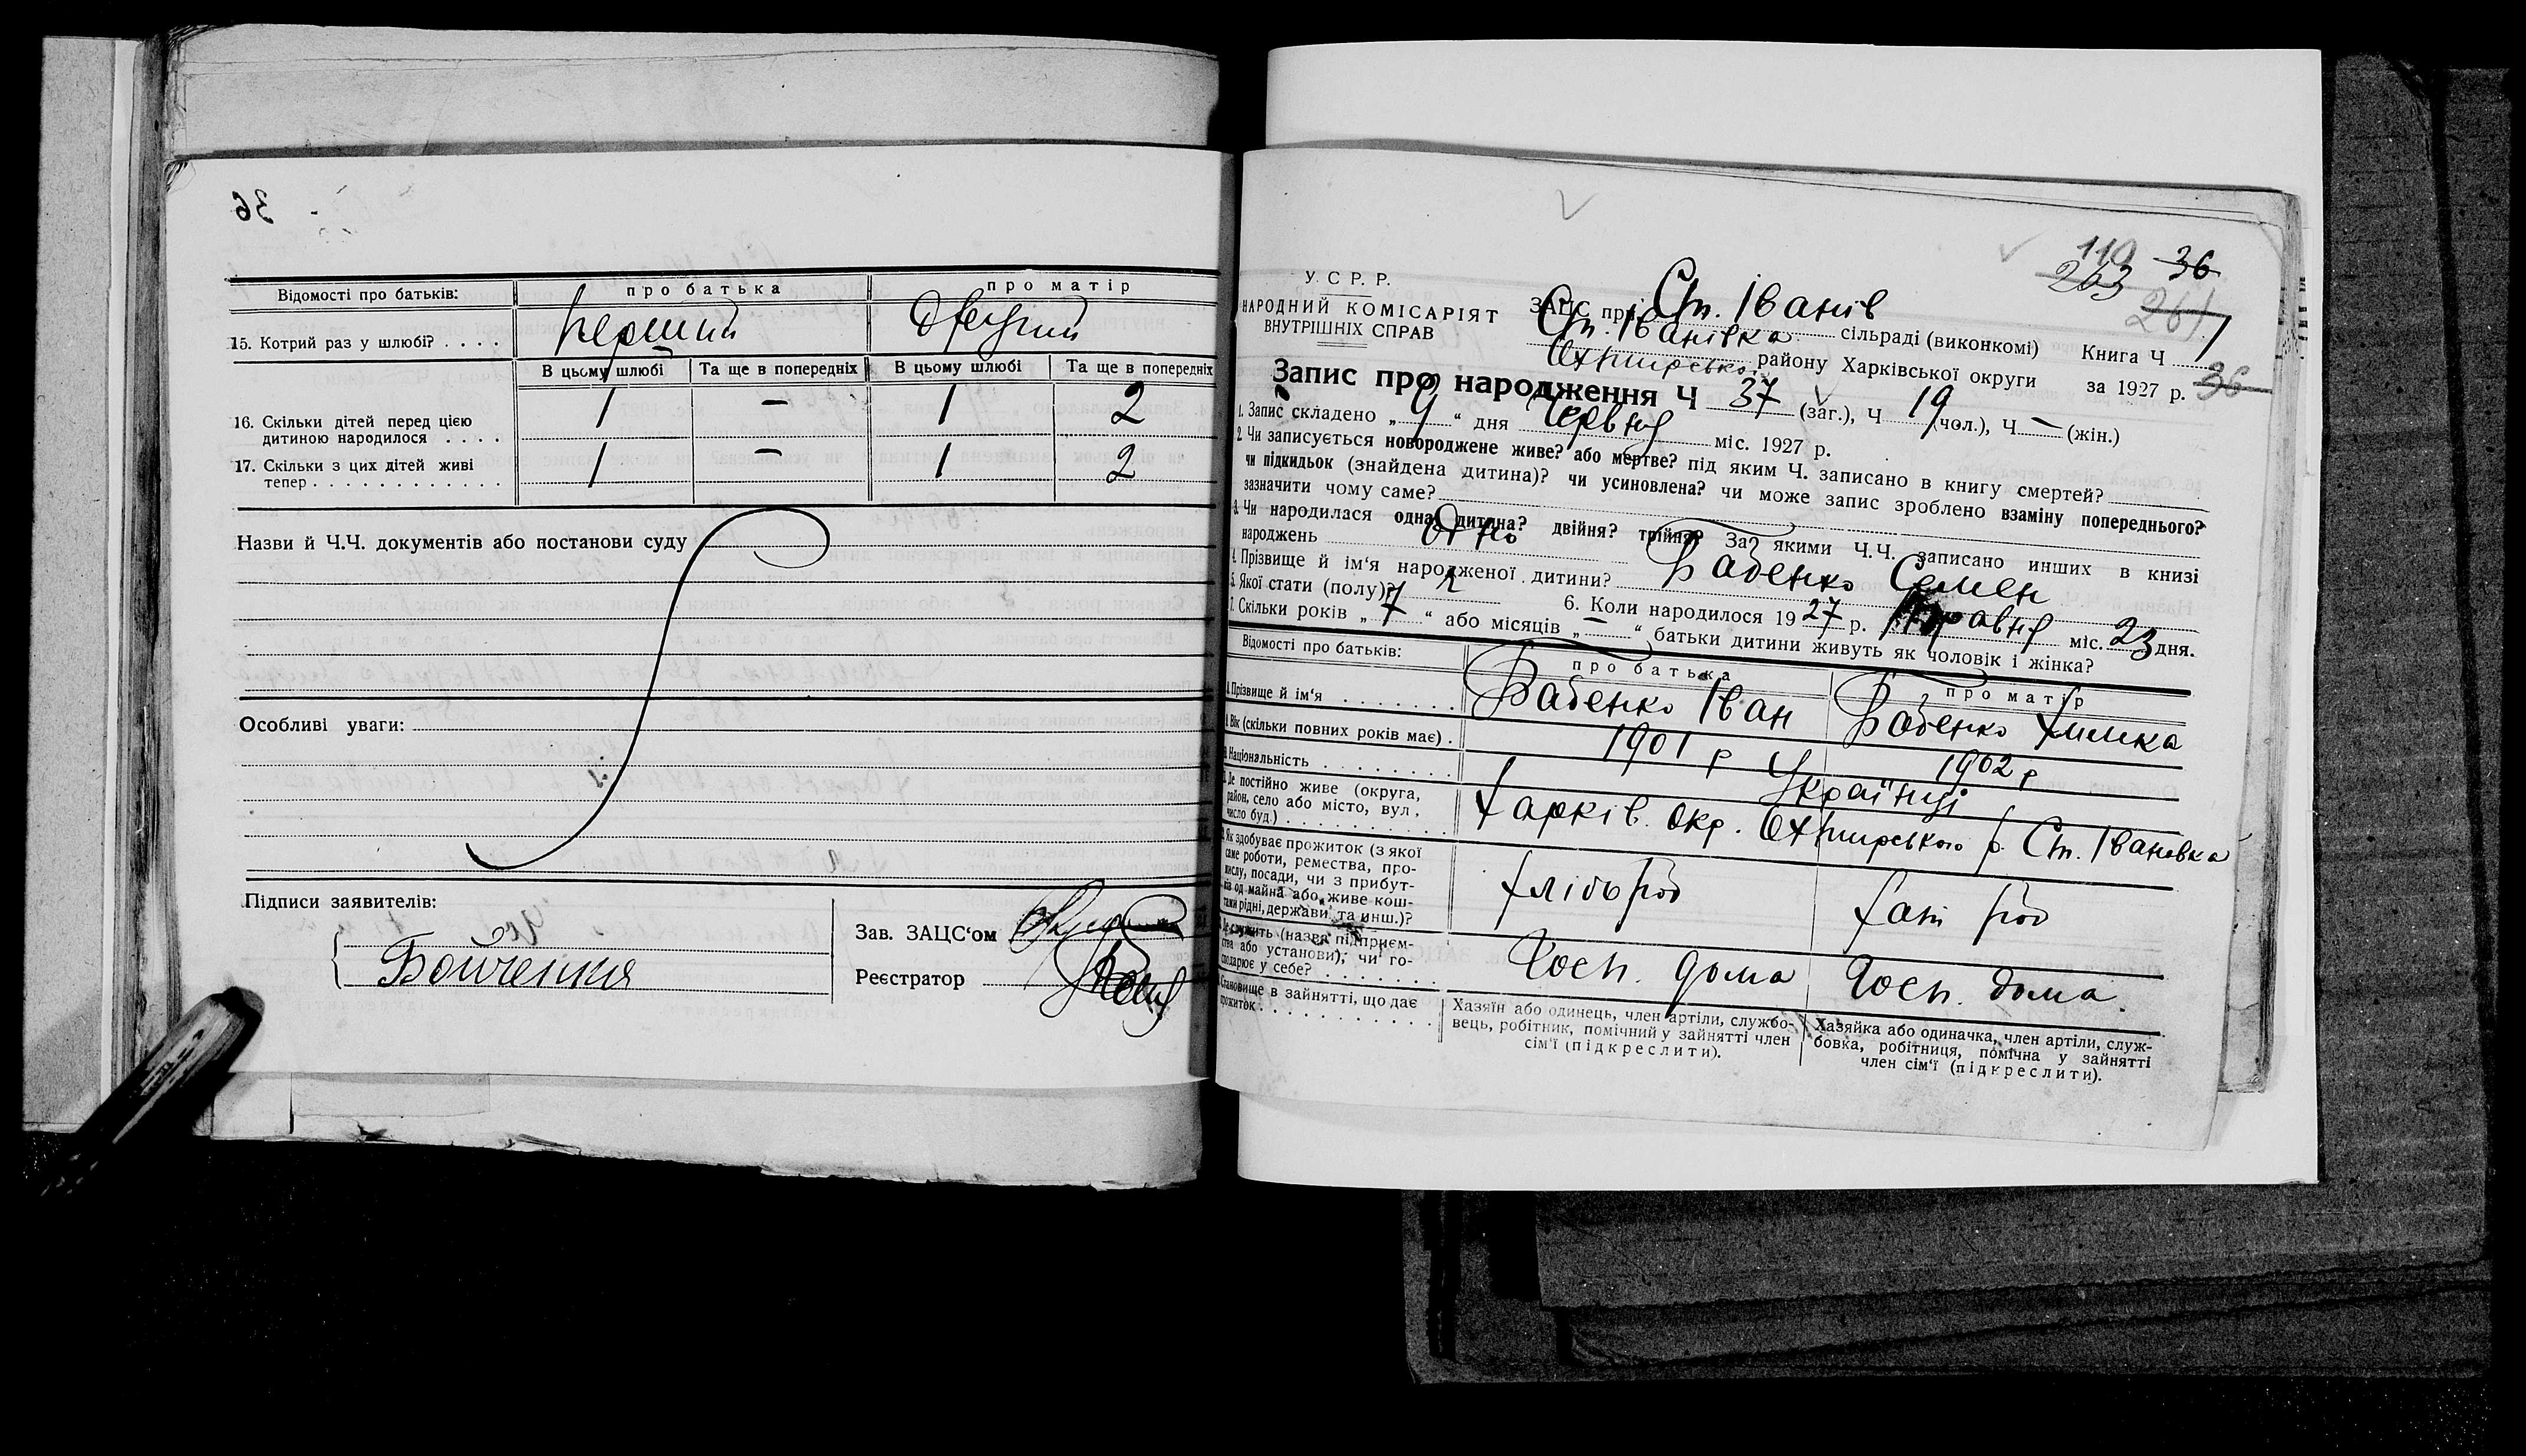 36
Відомості про батьків: про батька про матір
15. Котрий раз у шлюбі? . . . . перший другий
В цьому шлюбі Та ще в попередніх В цьому шлюбі Та ще в попередніх
16. Скільки дітей перед цією
дитиною народилося . . . . 1 — 1 2
17. Скільки з цих дітей живі
тепер . . . . . . . . . . . . 1 — 1 2
Назви й Ч.Ч. документів або постанови суду
Особливі уваги:
Підписи заявителів:
Зав. ЗАЦС‘ом
Реєстратор
110 36
263
261
У. С. Р. Р.
НАРОДНИЙ КОМІСАРІЯТ
ВНУТРІШНІХ СПРАВ
ЗАЦС при Ст. Іванів
Ст. Іванівка сільраді (виконкомі) Книга Ч 1
Охтирсько району Харківської округи за 1927 р. 36
Запис про народження Ч 37 (заг.), Ч 19 (чол.), Ч — (жін.)
1. Запис складено „ 9 “ дня Червня міс. 1927 р.
2. Чи записується новороджене живе? або мертве? під яким Ч. записано в книгу смертей?
чи підкидьок (знайдена дитина)? чи усиновлена? чи може запис зроблено взаміну попереднього?
зазначити чому саме?
3. Чи народилася одна дитина? двійня? трійня? За якими Ч.Ч. записано инших в книзі
народжень одно
4. Прізвище й ім‘я народженої дитини? Бабенко Семен
5. Якої стати (полу)? ч 6. Коли народилося 1927 р. Травня міс. 23 дня.
7. Скільки років „ 7 “ або місяців „ — “ батьки дитини живуть як чоловік і жінка?
Відомості про батьків: про батька про матір
8. Прізвище й ім‘я . . . . . . . Бабенко Іван Бабенко Химка
9. Вік (скільки повних років має) . 1901 р 1902 р
10. Національність . . . . . . . . Українці
11. Де постійно живе (округа,
район, село або місто, вул.,
число буд.) . . . . . . . . . . Харків. окр. Охтирського р. Ст. Івановка
12. Як здобуває прожиток (з якої
саме роботи, ремества, про-
мислу, посади, чи з прибут-
ків од майна або живе кош-
тами рідні, держави та инш.)? хлібороб хат роб
13. Де служить (назва підприєм-
ства або установи), чи го-
сподарює у себе? . . . . . . Госп. дома Госп. дома
14. Становище в зайнятті, що дає
прожиток . . . . . . . . . . . .
Хазяїн або одинець, член артіли, службо-
вець, робітник, помічний у зайнятті член
сім‘ї (підкреслити).
Хазяйка або одиначка, член артіли, служ-
бовка, робітниця, помічна у зайнятті
член сім‘ї (підкреслити).